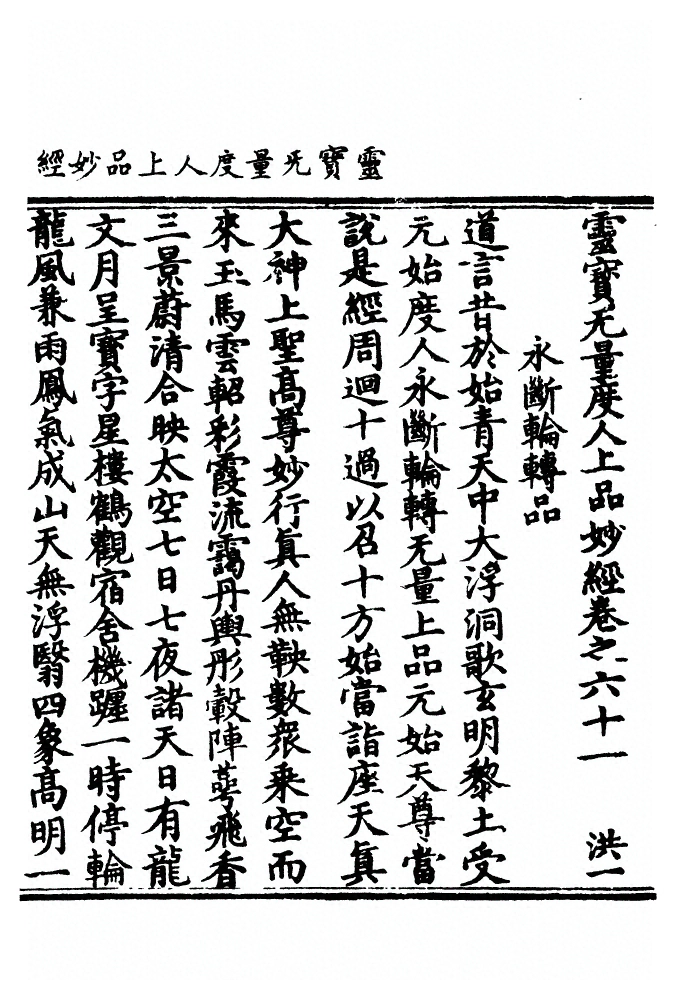 靈寶无量度人上品妙經
靈寶无量度人上品妙經卷之六十一 洪一
永斷輪轉品
道言昔於始青天中大浮洞歌玄明黎土受
元始度人永斷輪轉无量上品元始天尊當
說是經周迴十過以召十方始當詣座天眞
大神上聖高尊妙行眞人無鞅數衆乘空而
來玉馬雲軺彩霞流靄丹輿彤轂陣蕚飛香
三景蔚清合映太空七日七夜諸天日有龍
文月呈寶字星樓鶴觀宿舍機躔一時停輪
龍風兼雨鳳氣成山天無浮翳四象高明一